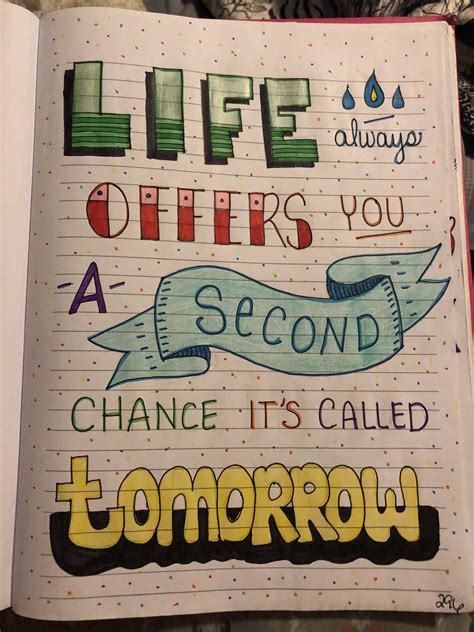 LIFE
always
OFFERS YOU
-A-
SeCOND
CHANCE IT'S CALLED
tOMORROW